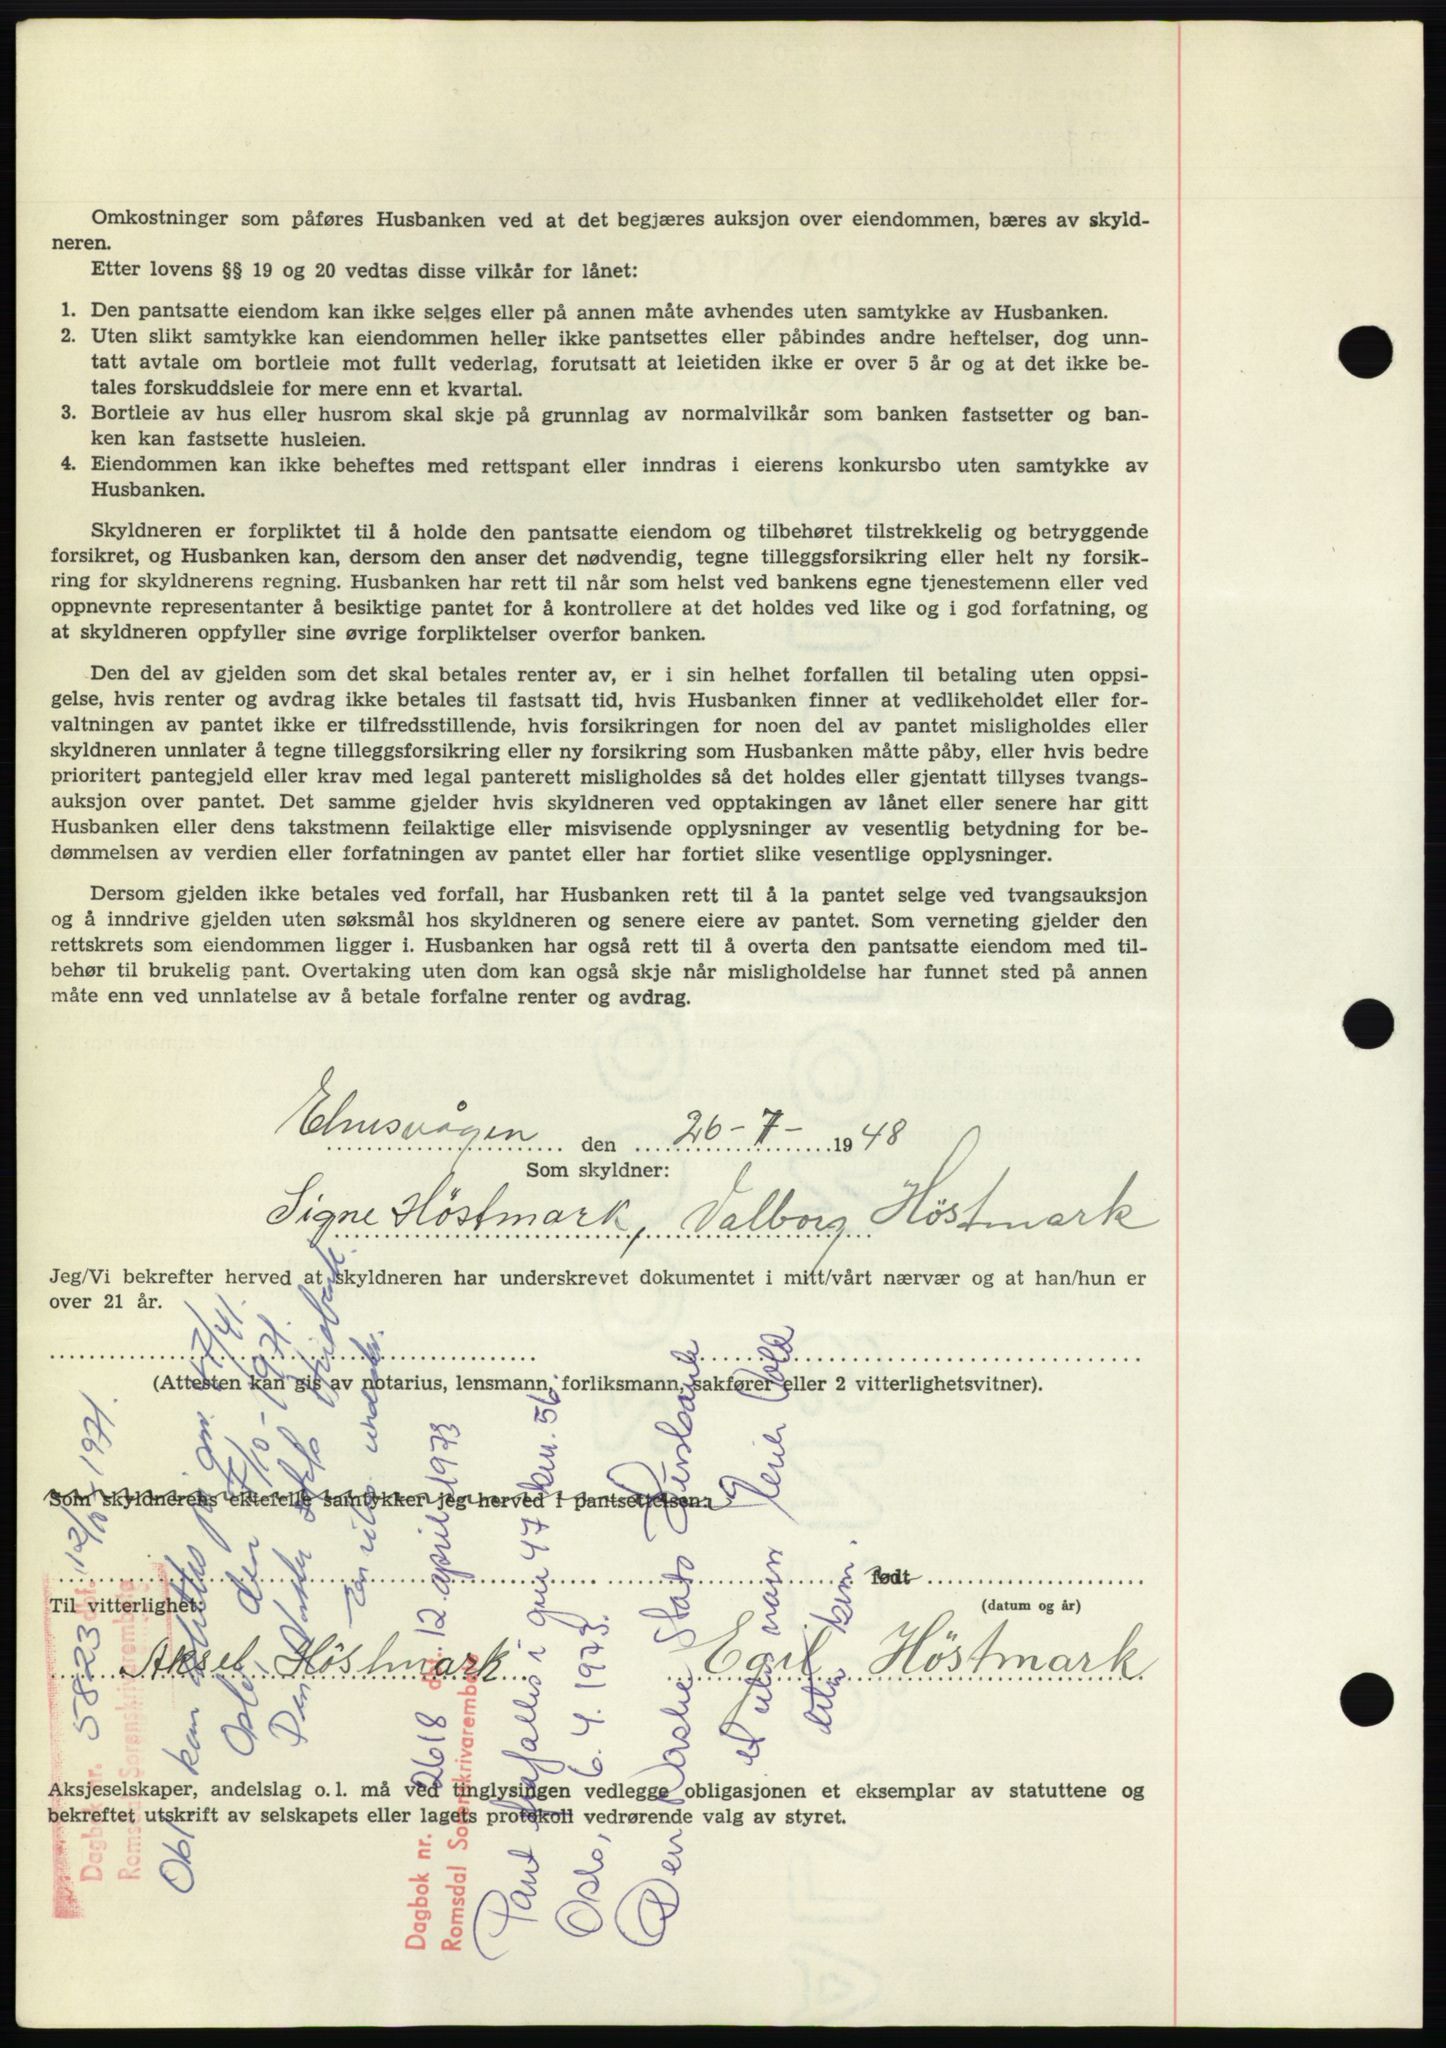 Omkostninger som påføres Husbanken ved at det begjæres auksjon over eiendommen, bæres av skyld-
neren.
Etter lovens §§ 19 og 20 vedtas disse vilkår for lånet:
1. Den pantsatte eiendom kan ikke selges eller på annen måte avhendes uten samtykke av Husbanken.
2. Uten slikt samtykke kan eiendommen heller ikke pantsettes eller påbindes andre heftelser, dog unn-
tatt avtale om bortleie mot fullt vederlag, forutsatt at leietiden ikke er over 5 år og at det ikke be-
tales forskuddsleie for mere enn et kvartal.
3. Bortleie av hus eller husrom skal skje på grunnlag av normalvilkår som banken fastsetter og ban-
ken kan fastsette husleien.
4. Eiendommen kan ikke beheftes med rettspant eller inndras i eierens konkursbo uten samtykke av
Husbanken.
Skyldneren er forpliktet til å holde den pantsatte eiendom og tilbehøret tilstrekkelig og betryggende
forsikret, og Husbanken kan, dersom den anser det nødvendig, tegne tilleggsforsikring eller helt ny forsik-
ring for skyldnerens regning. Husbanken har rett til når som helst ved bankens egne tjenestemenn eller ved
oppnevnte representanter å besiktige pantet for å kontrollere at det holdes ved like og i god forfatning, og
at skyldneren oppfyller sine øvrige forpliktelser overfor banken.
Den del av gjelden som det skal betales renter av, er i sin helhet forfallen til betaling uten oppsi-
gelse, hvis renter og avdrag ikke betales til fastsatt tid, hvis Husbanken finner at vedlikeholdet eller for-
valtningen av pantet ikke er tilfredsstillende, hvis forsikringen for noen del av pantet misligholdes eller
skyldneren unnlater å tegne tilleggsforsikring eller ny forsikring som Husbanken måtte påby, eller hvis bedre
prioritert pantegjeld eller krav med legal panterett misligholdes så det holdes eller gjentatt tillyses tvangs-
auksjon over pantet. Det samme gjelder hvis skyldneren ved opptakingen av lånet eller senere har gitt
Husbanken eller dens takstmenn feilaktige eller misvisende opplysninger av vesentlig betydning for be-
dømmelsen av verdien eller forfatningen av pantet eller har fortiet slike vesentlige opplysninger.
Dersom gjelden ikke betales ved forfall, har Husbanken rett til å la pantet selge ved tvangsauksjon
og å inndrive gjelden uten søksmål hos skyldneren og senere eiere av pantet. Som verneting gjelder den
rettskrets som eiendommen ligger i. Husbanken har også rett til å overta den pantsatte eiendom med til-
behør til brukelig pant. Overtaking uten dom kan også skje når misligholdelse har funnet sted på annen
måte enn ved unnlatelse av å betale forfalne renter og avdrag.
den 26-7-1948
Som skyldner:
Signe Höstmark, Valborg Höstmark
Jeg/Vi bekrefter herved at skyldneren har underskrevet dokumentet i mitt/vårt nærvær og at han/hun er
over 21 år.
(Attesten kan gis av notarius, lensmann, forliksmann, sakfører eller 2 vitterlighetsvitner).
Som skyldnerens ektefelle samtykker jeg herved i pantsettelsen:
født
Til vitterlighet:
(datum og år)
Aksel Höstmark Egil Höstmark
Aksjeselskaper, andelslag o.l. må ved tinglysingen vedlegge obligasjonen et eksemplar av statuttene og
bekreftet utskrift av selskapets eller lagets protokoll vedrørende valg av styret.
Dagbok nr. 5823 dbf. 12/10 1971.
Romsdal Sorenskrivarembete
Obl kan
Oslo, den 7/10-1971.
Den Norske Stats Husbank
Dagbok nr. 2618 dbf. 12. april 1973
Romsdal Sorenskrivarembete
Pant frafalles i gnr 47 bnr. 56
Oslo, 6.4.1973.
Den Norske Stats Husbank